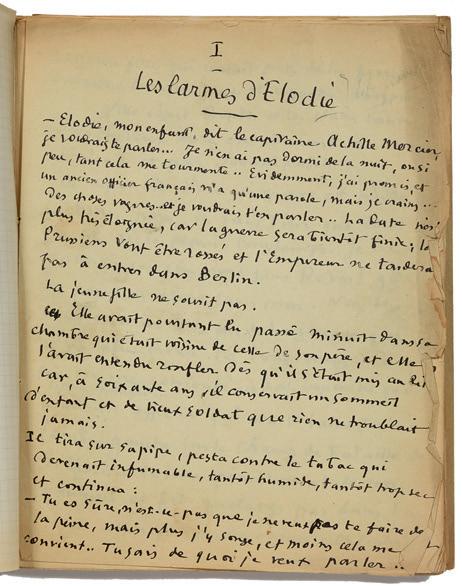 I
Les larmes d'Elodie
— Elodie, mon enfant, dit le capitaine Achille Mercier,
je voudrais te parler... Je n'en ai pas dormi de la nuit, ou si
peu, tant cela me tourmente.. Evidemment, j'ai promis, et
un ancien officier français n'a qu'une parole, mais je crains...
Des choses vagues.. et je voudrais t'en parler.. La date n'est
plus très éloignée, car la guerre sera bientôt finie; les
Prussiens vont être rossés et l'Empereur ne tardera
pas à entrer dans Berlin.
La jeune fille ne sourit pas.
Elle avait pourtant lu passé minuit dans sa
chambre qui était voisine de celle de son père, et elle
l'avait entendu ronfler dès qu'il s'était mis au lit
car, à soixante ans, il conservait un sommeil
d'enfant et de vieux soldat que rien ne troublait
jamais.
Il tira sur sa pipe, pesta contre le tabac qui
devenait infumable, tantôt humide, tantôt trop sec
et continua:
— Tu es sûre, n'est-ce-pas que je ne veux pas te faire de
la peine, mais plus j'y songe, et moins cela me
convient.. Tu sais de quoi je veux parler..